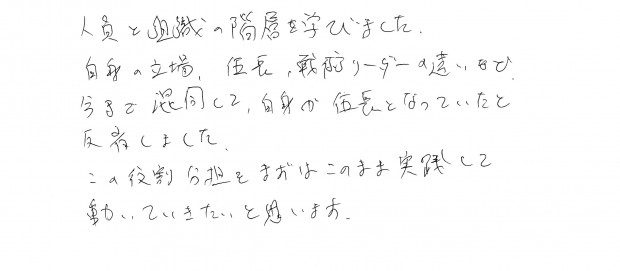 人員と組織の階層を学びました.
自身の立場, 伍長, 戦術リーダーの違いなど
今まで混同して, 自身が伍長となっていたと
反省しました.
この役割分担をまずはこのまま実践して
動いていきたいと思います.